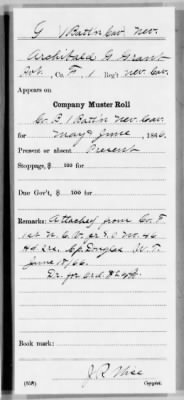 G | 1 Batt'n Cav. | Nev.
Archibald G. Grant
Pvt., Co. F, 1 Reg't Nev. Cav.
Appears on
Company Muster Roll
Co. B, 1 Batt'n Nev. Cav.
for May & June, 1866.
Present or absent Present
Stoppage, $ 100 for
Due Gov't, $ 100 for
Remarks: Attached from Co. F
1st N. C. V. pr S. O. No. 46
Hd Qrs. Cp. Douglas U. T.
June 18/66.
Dr. for ord
Book mark:
J. R. Wise
(858) Copyist.